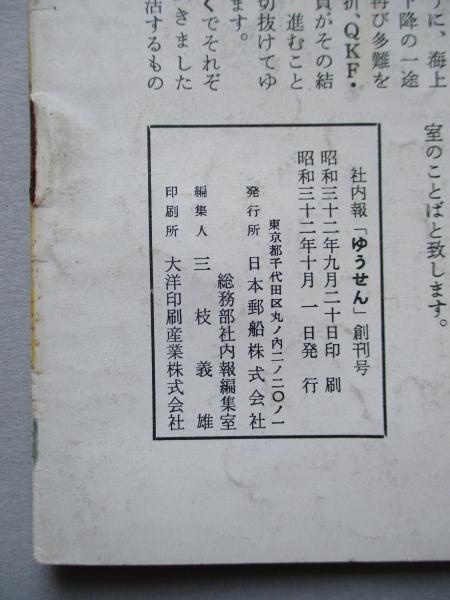 うに、海上
下降の一途
再び多難を
折、QKF・
員がその結
進むこと
切抜けてゆ
ます。
くでそれぞ
きました
活するもの
室のことばと致します。
社内報「ゆうせん」創刊号
昭和三十二年九月二十日印刷
昭和三十二年十月一日発行
東京都千代田区丸ノ内二ノ二〇ノ一
発行所 日本郵船株式会社
総務部社内報編集室
編集人 三枝義雄
印刷所 大洋印刷産業株式会社